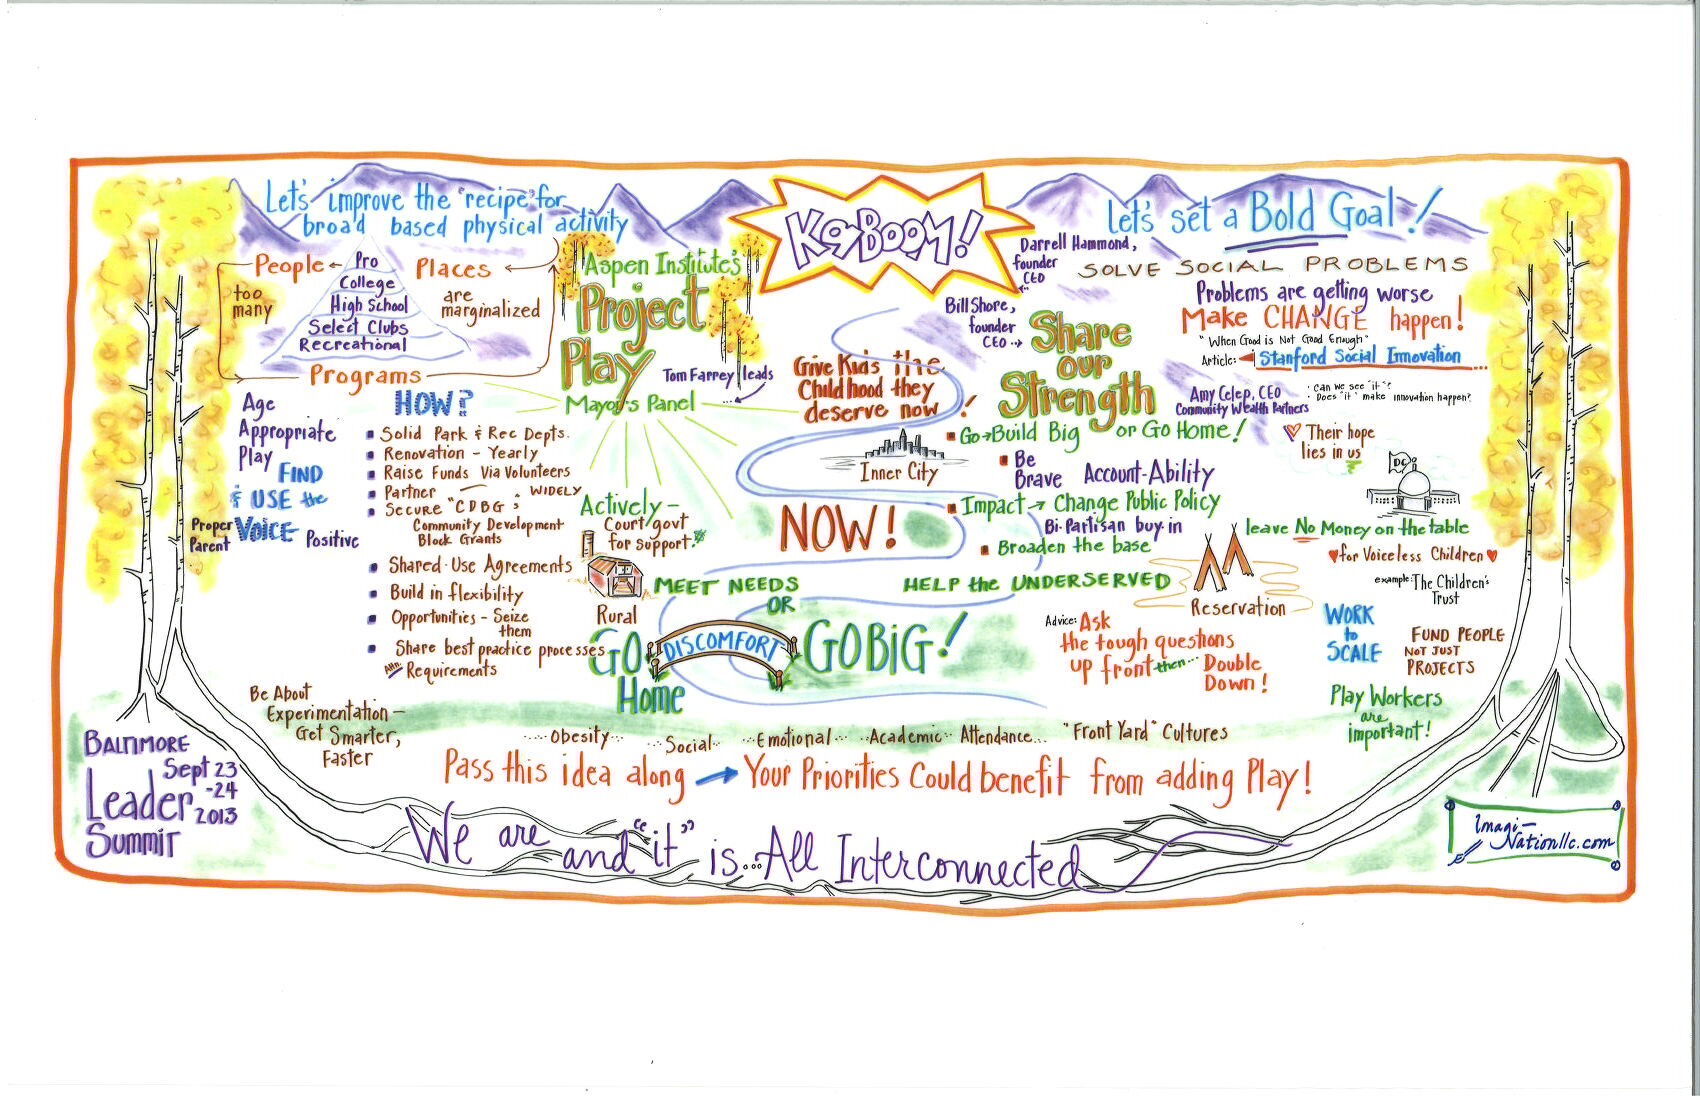 Let's improve the "recipe" for
broad based physical activity
People
Pro
Places
too
many
College
High School
Select Clubs
Recreational
are
marginalized
Programs
Age
Appropriate
Play
FIND
& USE the
VOICE
Proper
Parent
Positive
HOW?
Solid Park & Rec Depts.
Renovation - Yearly
Raise Funds Via Volunteers
Partner WIDELY
Secure "CDBG"
Community Development
Block Grants
Shared-Use Agreements
Build in flexibility
Opportunities - Seize
them
Share best practice processes
Requirements
Be About
Experimentation -
Get Smarter,
Faster
Aspen Institute's
Project
Play
Tom Farrey leads
Mayor's Panel
Actively -
Court govt
for support!
Rural
KaBOOM!
Darrell Hammond,
founder
CEO
Give Kids the
Childhood they
deserve now!
Inner City
NOW!
MEET NEEDS
OR
HELP the UNDERSERVED
GO
Home
DISCOMFORT
GO BIG!
Bill Shore,
founder
CEO
Share
our
Strength
Go → Build Big or Go Home!
Be
Brave Account-Ability
Impact → Change Public Policy
Bi-Partisan buy in
Broaden the base
Reservation
Advice: Ask
the tough questions
up front then... Double
Down!
Let's set a Bold Goal!
SOLVE SOCIAL PROBLEMS
Problems are getting worse
Make CHANGE happen!
"When Good is Not Good Enough"
Article: Stanford Social Innovation...
Amy Celep, CEO
Community Wealth Partners
Can we see "it"?
Does "it" make innovation happen?
Their hope
lies in us
DC
leave No Money on the table
for Voiceless Children
example: The Children's
Trust
WORK
to
SCALE
FUND PEOPLE
NOT JUST
PROJECTS
Play Workers
are
important!
...Obesity... ...Social... ...Emotional... ...Academic... Attendance... "Front Yard" Cultures
Pass this idea along → Your Priorities Could benefit from adding Play!
We are and "it" is... All Interconnected
BALTIMORE
Sept 23
-24
2013
Leader
Summit
Imagi-
Nationllc.com